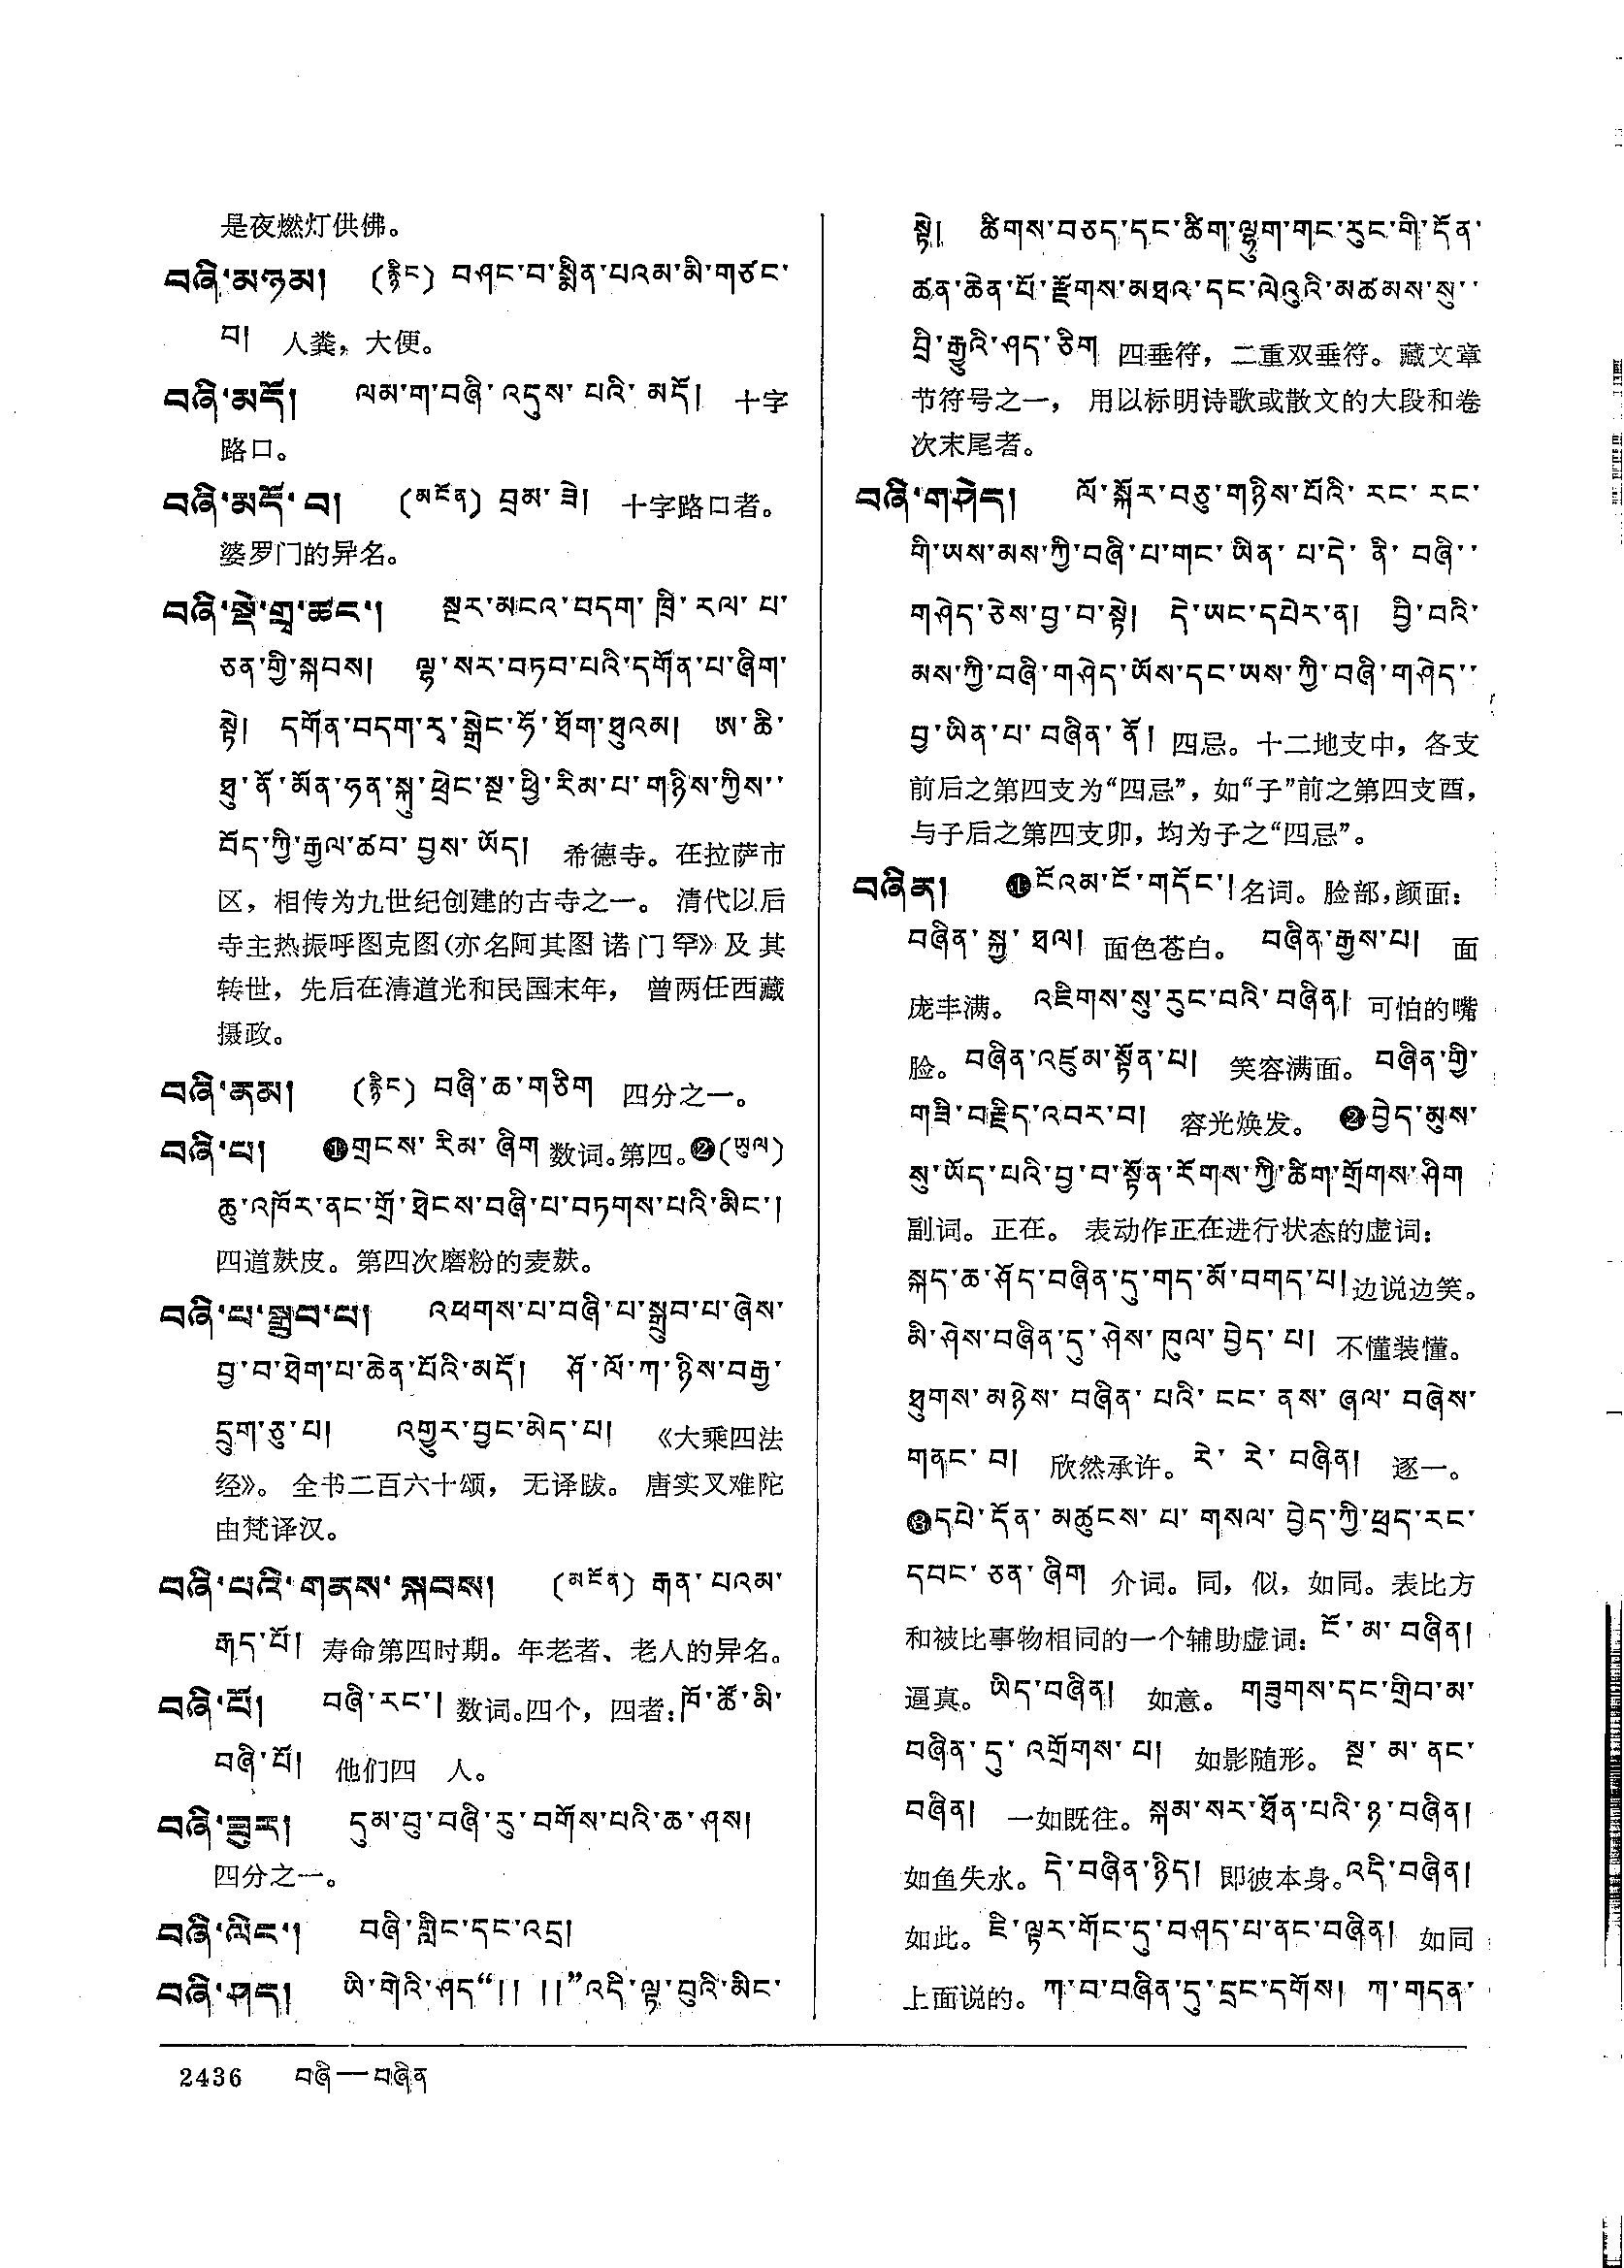 是夜燃灯供佛。
བཞི་མཉམ།　(རྙིང) བཤང་བ་སྨིན་པའམ་མི་གཙང་
བ།　人粪，大便。
བཞི་མདོ།　ལམ་ག་བཞི་འདུས་པའི་མདོ།　十字
路口。
བཞི་མདོ་བ།　(མངོན) བྲམ་ཟེ།　十字路口者。
婆罗门的异名。
བཞི་སྡེ་གྲྭ་ཚང་།　སྔར་མངའ་བདག་ཁྲི་རལ་པ་
ཅན་གྱི་སྐབས།　ལྷ་སར་བཏབ་པའི་དགོན་པ་ཞིག་
སྟེ།　དགོན་བདག་རྭ་སྒྲེང་ཧོ་ཐོག་ཐུའམ།　ཨ་ཆི་
ཐུ་ནོ་མོན་ཧན་སྐུ་ཕྲེང་སྔ་ཕྱི་རིམ་པ་གཉིས་ཀྱིས་
བོད་ཀྱི་རྒྱལ་ཚབ་བྱས་ཡོད།　希德寺。在拉萨市
区，相传为九世纪创建的古寺之一。清代以后
寺主热振呼图克图(亦名阿其图诺门罕》及其
转世，先后在清道光和民国末年，曾两任西藏
摄政。
བཞི་ནམ།　(རྙིང) བཞི་ཆ་གཅིག　四分之一。
བཞི་པ།　❶གྲངས་རིམ་ཞིག 数词。第四。❷(ཡུལ)
ཆུ་འཁོར་ནང་གྲོ་ཐེངས་བཞི་པ་བཏགས་པའི་མིང་།
四道麸皮。第四次磨粉的麦麸。
བཞི་པ་སྒྲུབ་པ།　འཕགས་པ་བཞི་པ་སྒྲུབ་པ་ཞེས་
བྱ་བ་ཐེག་པ་ཆེན་པོའི་མདོ།　ཤོ་ལོ་ཀ་ཉིས་བརྒྱ་
དྲུག་ཅུ་པ།　འགྱུར་བྱང་མེད་པ།　《大乘四法
经》。全书二百六十颂，无译跋。唐实叉难陀
由梵译汉。
བཞི་པའི་གནས་སྐབས།　(མངོན) རྒན་པའམ་
རྒད་པོ།　寿命第四时期。年老者、老人的异名。
བཞི་པོ།　བཞི་རང་།　数词。四个，四者：ཁོ་ཚོ་མི་
བཞི་པོ།　他们四　人。
བཞི་ཟུར།　དུམ་བུ་བཞི་རུ་བགོས་པའི་ཆ་ཤས།
四分之一。
བཞི་ལིང་།　བཞི་གླིང་དང་འདྲ།
བཞི་ཤད།　ཡི་གེའི་ཤད“།། །།”འདི་ལྟ་བུའི་མིང་
སྟེ།　ཚིགས་བཅད་དང་ཚིག་ལྷུག་གང་རུང་གི་དོན་
ཚན་ཆེན་པོ་རྫོགས་མཐའ་དང་ལེའུའི་མཚམས་སུ་
བྲི་རྒྱུའི་ཤད་ཅིག 四垂符，二重双垂符。藏文章
节符号之一，用以标明诗歌或散文的大段和卷
次末尾者。
བཞི་གཤེད།　ལོ་སྐོར་བཅུ་གཉིས་པོའི་རང་རང་
གི་ཡས་མས་ཀྱི་བཞི་པ་གང་ཡིན་པ་དེ་ནི་བཞི་
གཤེད་ཅེས་བྱ་བ་སྟེ།　དེ་ཡང་དཔེར་ན།　བྱི་བའི་
མས་ཀྱི་བཞི་གཤེད་ཡོས་དང་ཡས་ཀྱི་བཞི་གཤེད་
བྱ་ཡིན་པ་བཞིན་ནོ།　四忌。十二地支中，各支
前后之第四支为“四忌”，如“子”前之第四支酉，
与子后之第四支卯，均为子之“四忌”。
བཞིན།　❶ངོའམ་ངོ་གདོང་།　名词。脸部，颜面：
བཞིན་སྐྱ་ཐལ།　面色苍白。བཞིན་རྒྱས་པ།　面
庞丰满。འཇིགས་སུ་རུང་བའི་བཞིན།　可怕的嘴
脸。བཞིན་འཛུམ་སྟོན་པ།　笑容满面。བཞིན་གྱི་
གཟི་བརྗིད་འབར་བ།　容光焕发。❷བྱེད་མུས་
སུ་ཡོད་པའི་བྱ་བ་སྟོན་རོགས་ཀྱི་ཚིག་གྲོགས་ཤིག
副词。正在。表动作正在进行状态的虚词：
སྐད་ཆ་ཤོད་བཞིན་དུ་གད་མོ་བགད་པ།　边说边笑。
མི་ཤེས་བཞིན་དུ་ཤེས་ཁུལ་བྱེད་པ།　不懂装懂。
ཐུགས་མཉེས་བཞིན་པའི་ངང་ནས་ཞལ་བཞེས་
གནང་བ།　欣然承许。རེ་རེ་བཞིན།　逐一。
❸དཔེ་དོན་མཚུངས་པ་གསལ་བྱེད་ཀྱི་ཕྲད་རང་
དབང་ཅན་ཞིག　介词。同，似，如同。表比方
和被比事物相同的一个辅助虚词：ངོ་མ་བཞིན།
逼真。ཡིད་བཞིན།　如意。གཟུགས་དང་གྲིབ་མ་
བཞིན་དུ་འགྲོགས་པ།　如影随形。སྔ་མ་ནང་
བཞིན།　一如既往。སྐམ་སར་ཐོན་པའི་ཉ་བཞིན།
如鱼失水。དེ་བཞིན་ཉིད།　即彼本身。འདི་བཞིན།
如此。ཇི་ལྟར་གོང་དུ་བཤད་པ་ནང་བཞིན།　如同
上面说的。ཀ་བ་བཞིན་དུ་དྲང་དགོས།　ཀ་གདན་
2436　བཞི—བཞིན